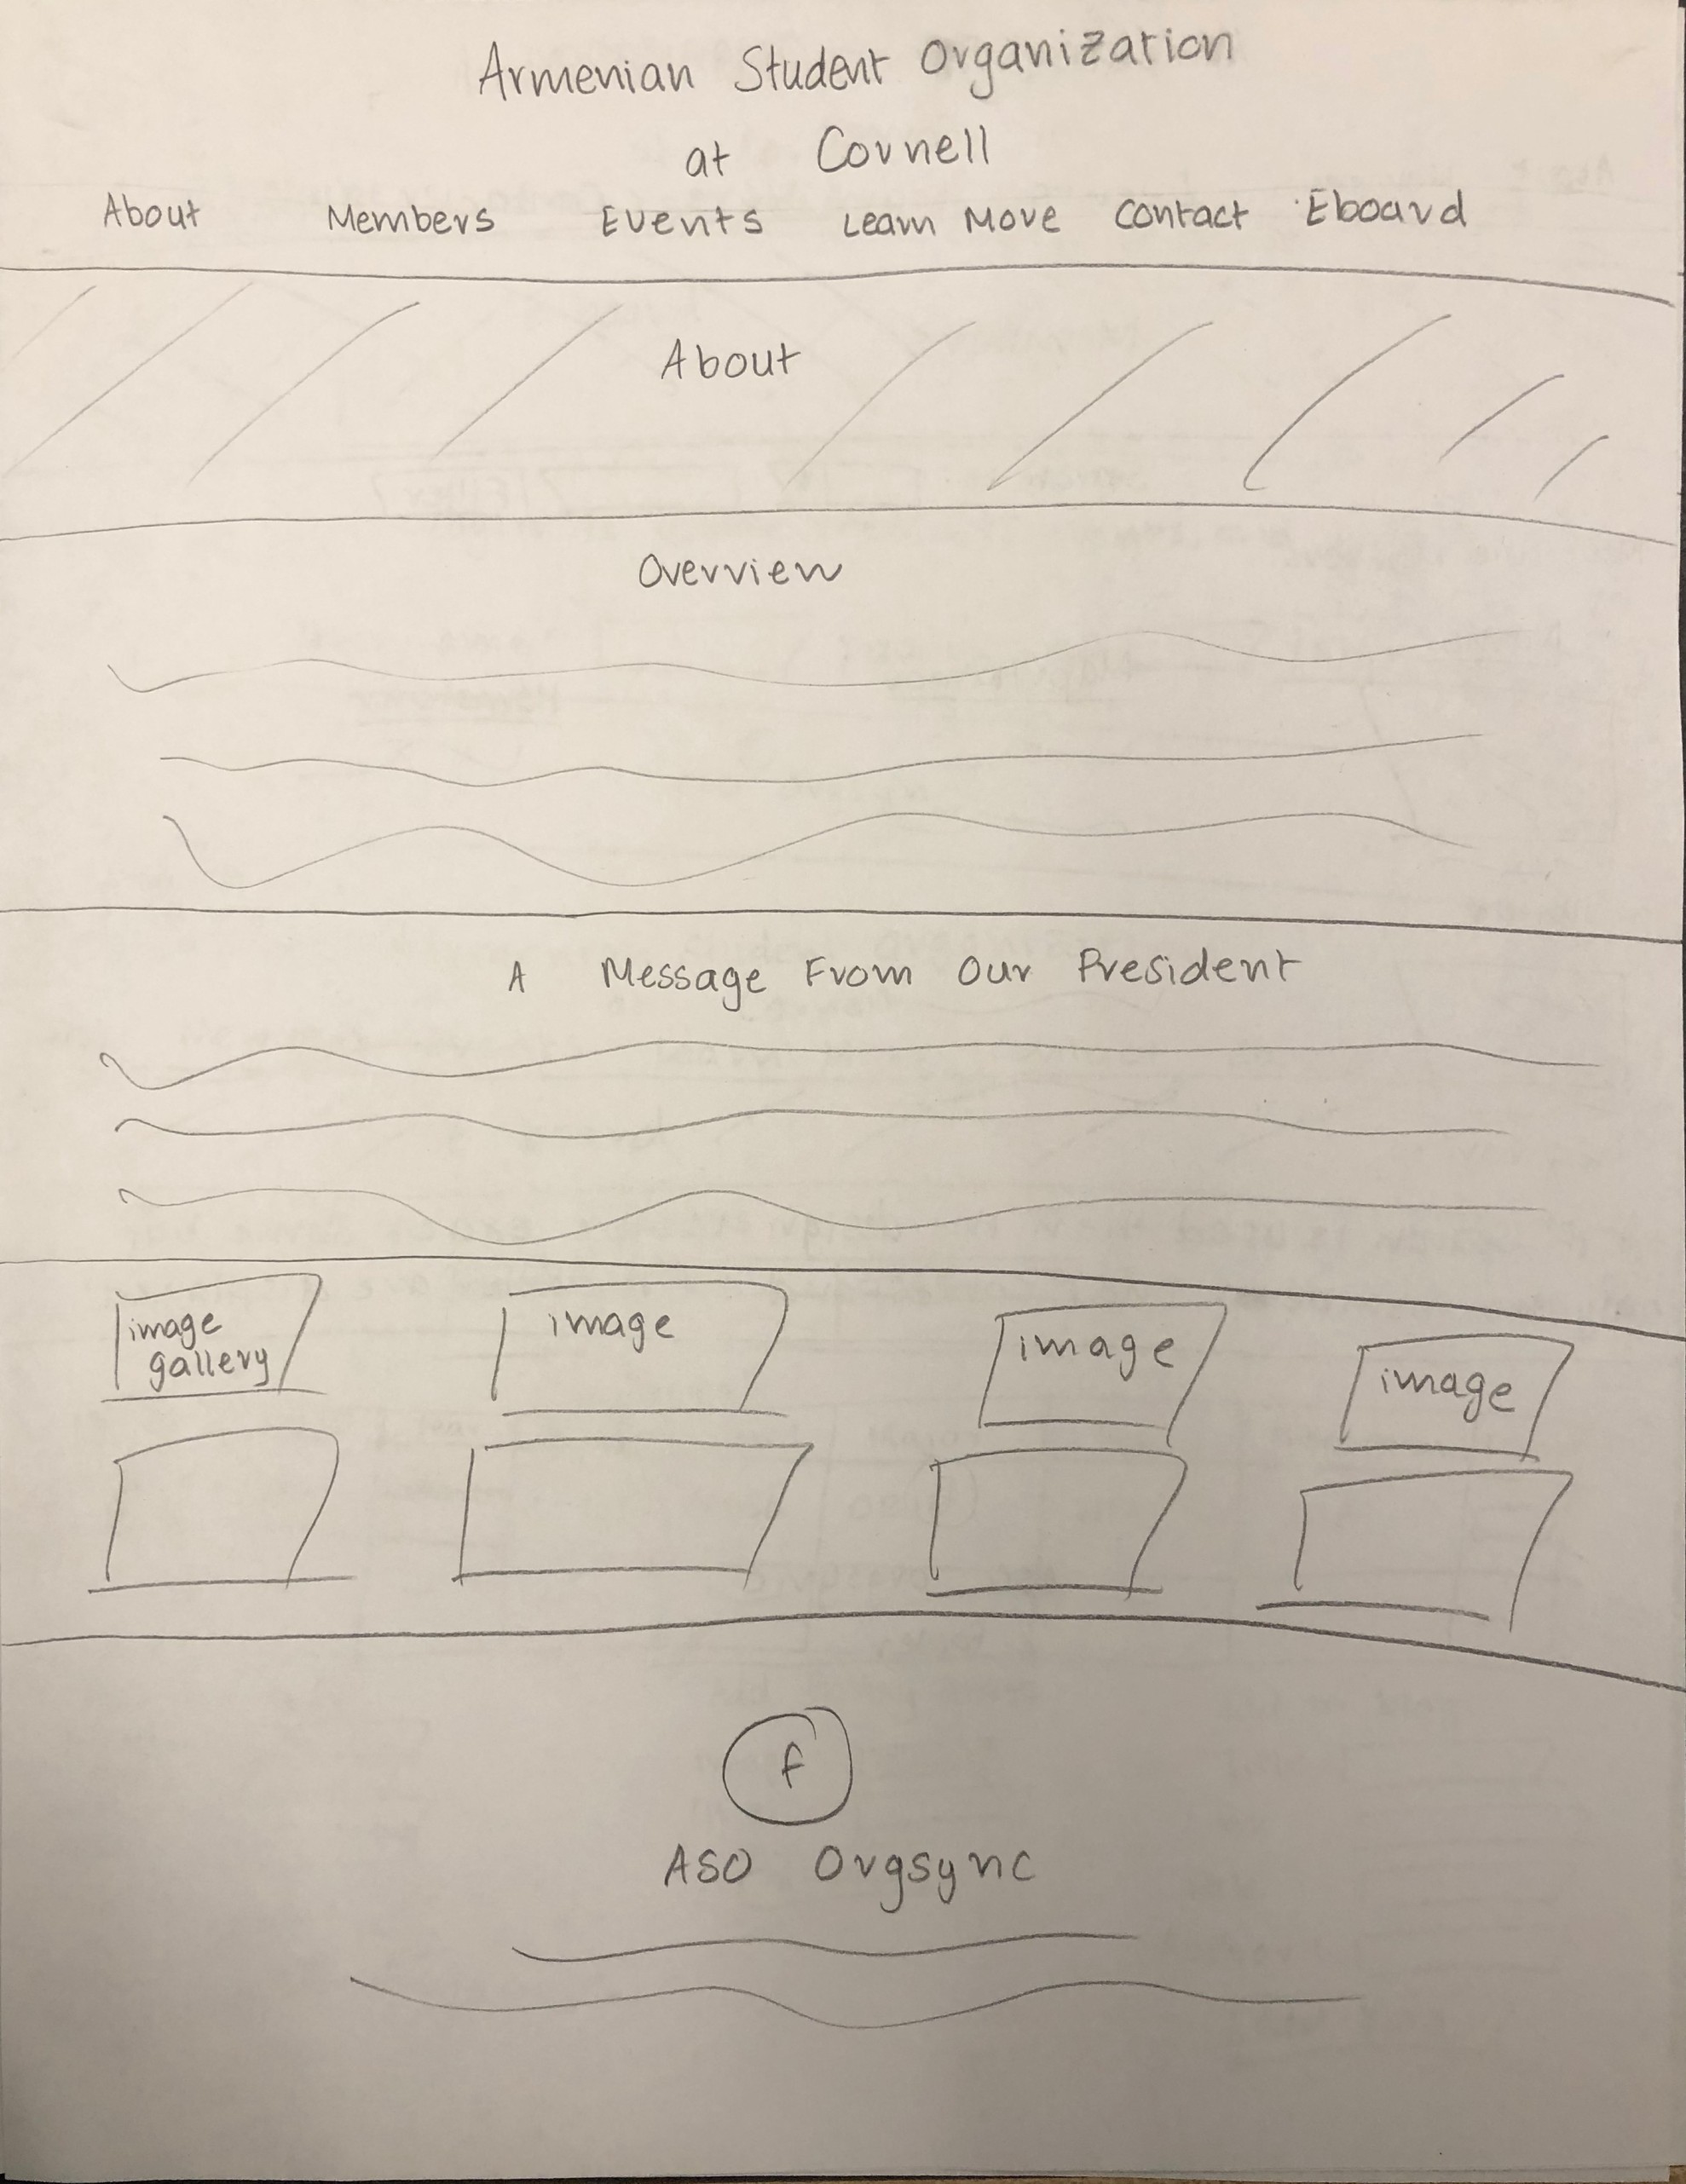 Armenian Student Organization
at Cornell
About Members Events Learn More Contact Eboard
About
Overview
A Message From Our President
image gallery image image image
f
ASO Orgsync